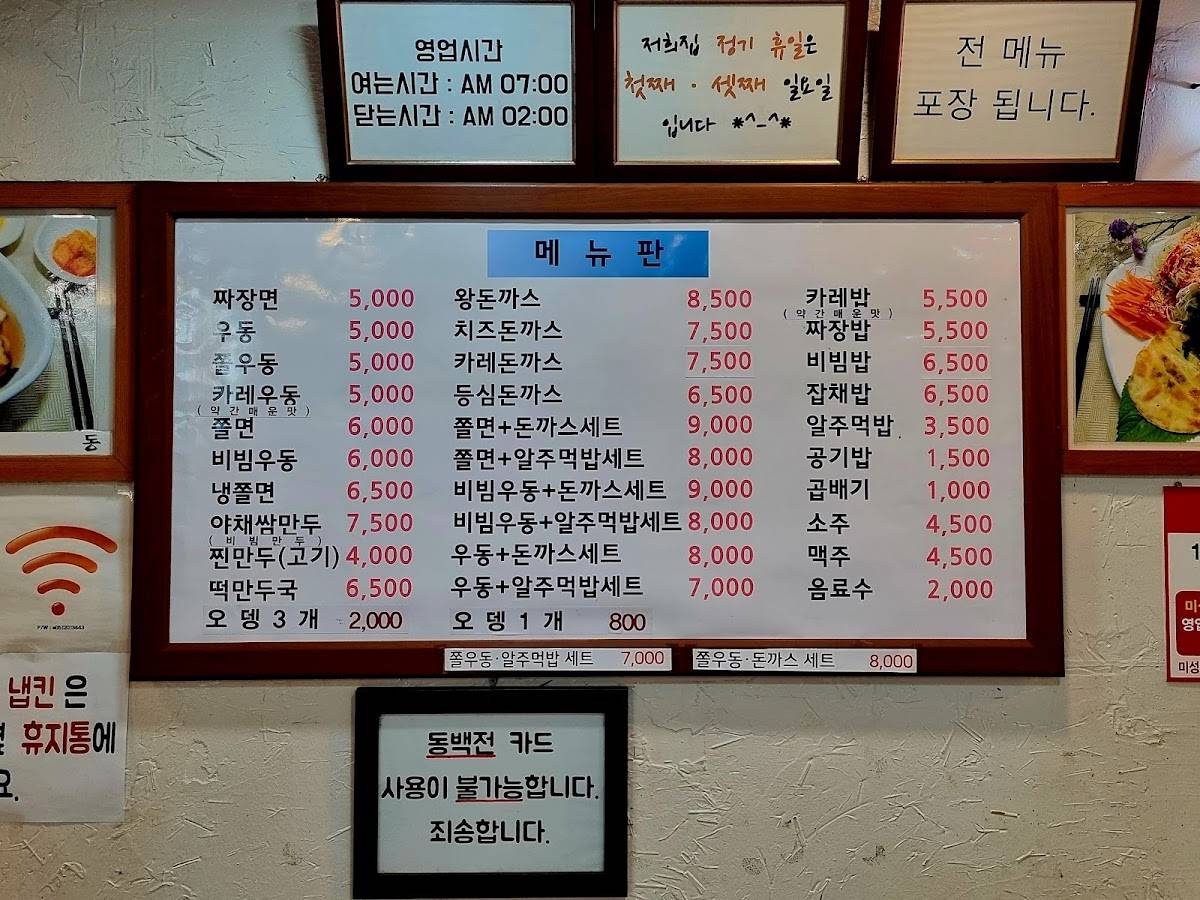 영업시간
여는시간 : AM 07:00
닫는시간 : AM 02:00
저희집 정기 휴일은
첫째 · 셋째 일요일
입니다 *^-^*
전 메뉴
포장 됩니다.
메 뉴 판
짜장면 5,000
우동 5,000
쫄우동 5,000
카레우동 5,000
(약간매운맛)
쫄면 6,000
비빔우동 6,000
냉쫄면 6,500
야채쌈만두 7,500
(비빔만두)
찐만두(고기) 4,000
떡만두국 6,500
오뎅3개 2,000
왕돈까스 8,500
치즈돈까스 7,500
카레돈까스 7,500
등심돈까스 6,500
쫄면+돈까스세트 9,000
쫄면+알주먹밥세트 8,000
비빔우동+돈까스세트 9,000
비빔우동+알주먹밥세트 8,000
우동+돈까스세트 8,000
우동+알주먹밥세트 7,000
오뎅1개 800
카레밥 5,500
(약간매운맛)
짜장밥 5,500
비빔밥 6,500
잡채밥 6,500
알주먹밥 3,500
공기밥 1,500
곱배기 1,000
소주 4,500
맥주 4,500
음료수 2,000
쫄우동·알주먹밥 세트 7,000
쫄우동·돈까스 세트 8,000
동
냅킨 은
휴지통에
요.
동백전 카드
사용이 불가능합니다.
죄송합니다.
1
미
영업
미성